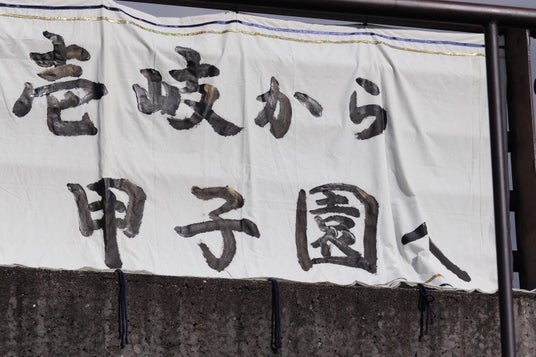 壱岐から
甲子園へ